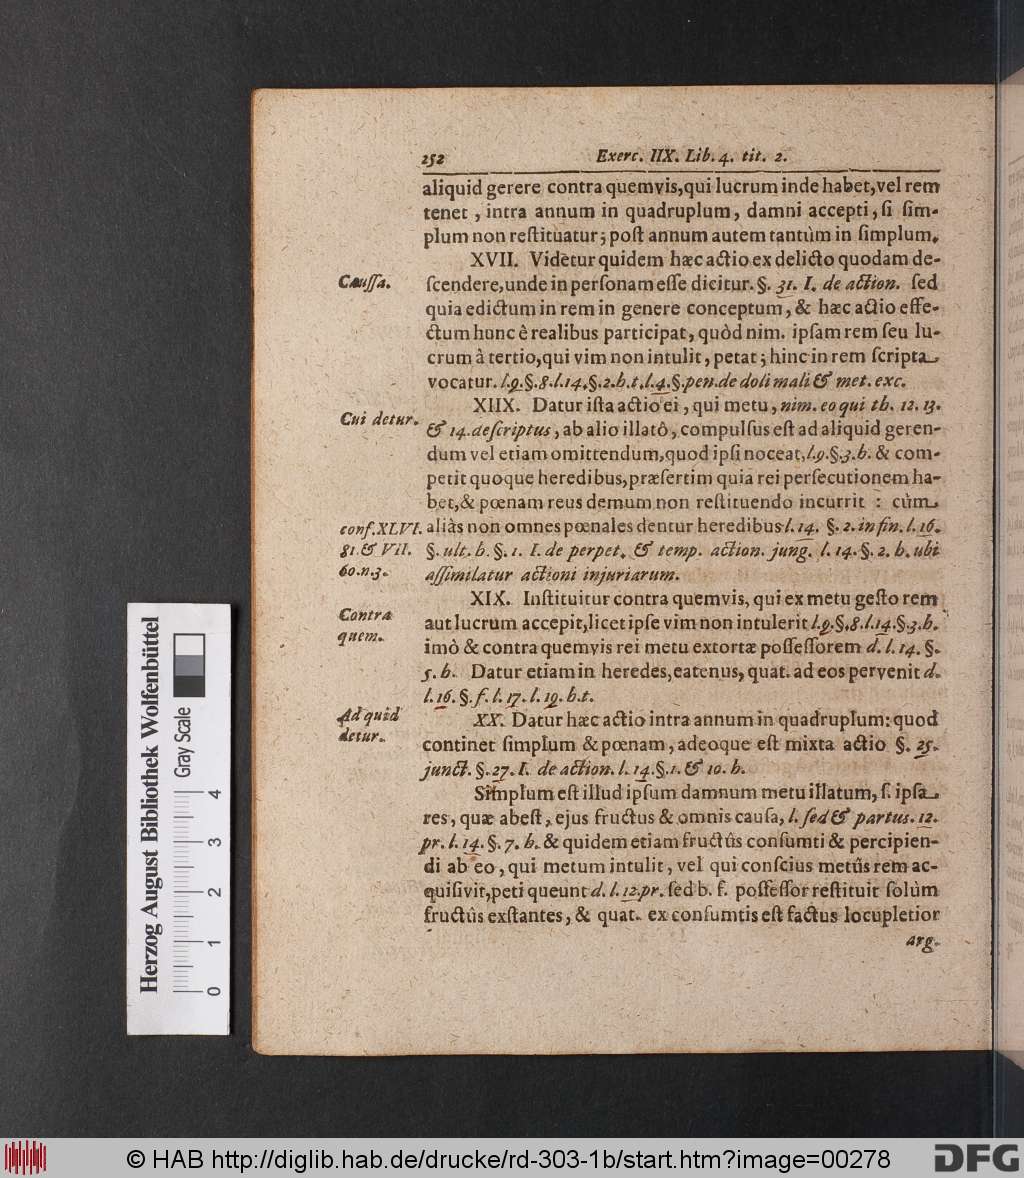 252 Exerc. IIX. Lib. 4. tit. 2.
aliquid gerere contra quemvis, qui lucrum inde habet, vel rem
tenet, intra annum in quadruplum, damni accepti, ſi ſim-
plum non reſtituatur; poſt annum autem tantùm in ſimplum.
Cauſſa.
XVII. Videtur quidem hæc actio ex delicto quodam de-
ſcendere, unde in perſonam eſſe dicitur. §. 31. I. de action. ſed
quia edictum in rem in genere conceptum, & hæc actio effe-
ctum hunc è realibus participat, quòd nim. ipſam rem ſeu lu-
crum à tertio, qui vim non intulit, petat; hinc in rem ſcripta
vocatur. l.9.§.8.l.14.§.2.h.t.l.4.§.pen.de doli mali & met. exc.
Cui detur.
XIIX. Datur iſta actio ei, qui metu, nim. eo qui th. 12. 13.
& 14. deſcriptus, ab alio illatô, compulſus eſt ad aliquid geren-
dum vel etiam omittendum, quod ipſi noceat, l.9.§.3.h. & com-
petit quoque heredibus, præſertim quia rei perſecutionem ha-
bet, & pœnam reus demum non reſtituendo incurrit : cùm
conf. XLVI.
81. & VII.
60.n.3.
aliàs non omnes pœnales dentur heredibus l.14. §.2. in fin. l.16.
§. ult. h. §. 1. I. de perpet. & temp. action. jung. l. 14. §. 2. h. ubi
aſſimilatur actioni injuriarum.
Contra
quem.
XIX. Inſtituitur contra quemvis, qui ex metu geſto rem
aut lucrum accepit, licet ipſe vim non intulerit l.9.§.8.l.14.§.3.h.
imò & contra quemvis rei metu extortæ poſſeſſorem d. l. 14. §.
5. h. Datur etiam in heredes, eatenus, quat. ad eos pervenit d.
l.16. §. f. l. 17. l. 19. h.t.
Ad quid
detur.
XX. Datur hæc actio intra annum in quadruplum: quod
continet ſimplum & pœnam, adeoque eſt mixta actio §. 25.
junct. §. 27. I. de action. l. 14. §. 1. & 10. h.
Simplum eſt illud ipſum damnum metu illatum, ſ. ipſa
res, quæ abeſt, ejus fructus & omnis cauſa, l. ſed & partus. 12.
pr. l. 14. §. 7. h. & quidem etiam fructûs conſumti & percipien-
di ab eo, qui metum intulit, vel qui conſcius metûs rem ac-
quiſivit, peti queunt d. l. 12. pr. ſed b. f. poſſeſſor reſtituit ſolùm
fructûs exſtantes, & quat. ex conſumtis eſt factus locupletior
arg.
Herzog August Bibliothek Wolfenbüttel
Gray Scale
0 1 2 3 4
© HAB http://diglib.hab.de/drucke/rd-303-1b/start.htm?image=00278
DFG